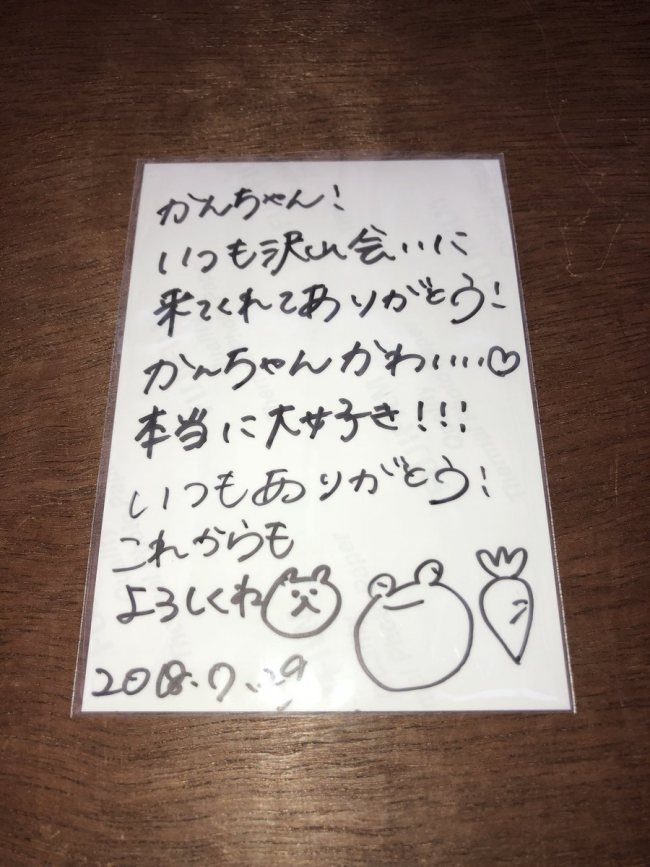 かんちゃん!
いつも沢山会いに
来てくれてありがとう!
かんちゃんかわいい♡
本当に大好き!!!
いつもありがとう!
これからも
よろしくね
2018.7.29